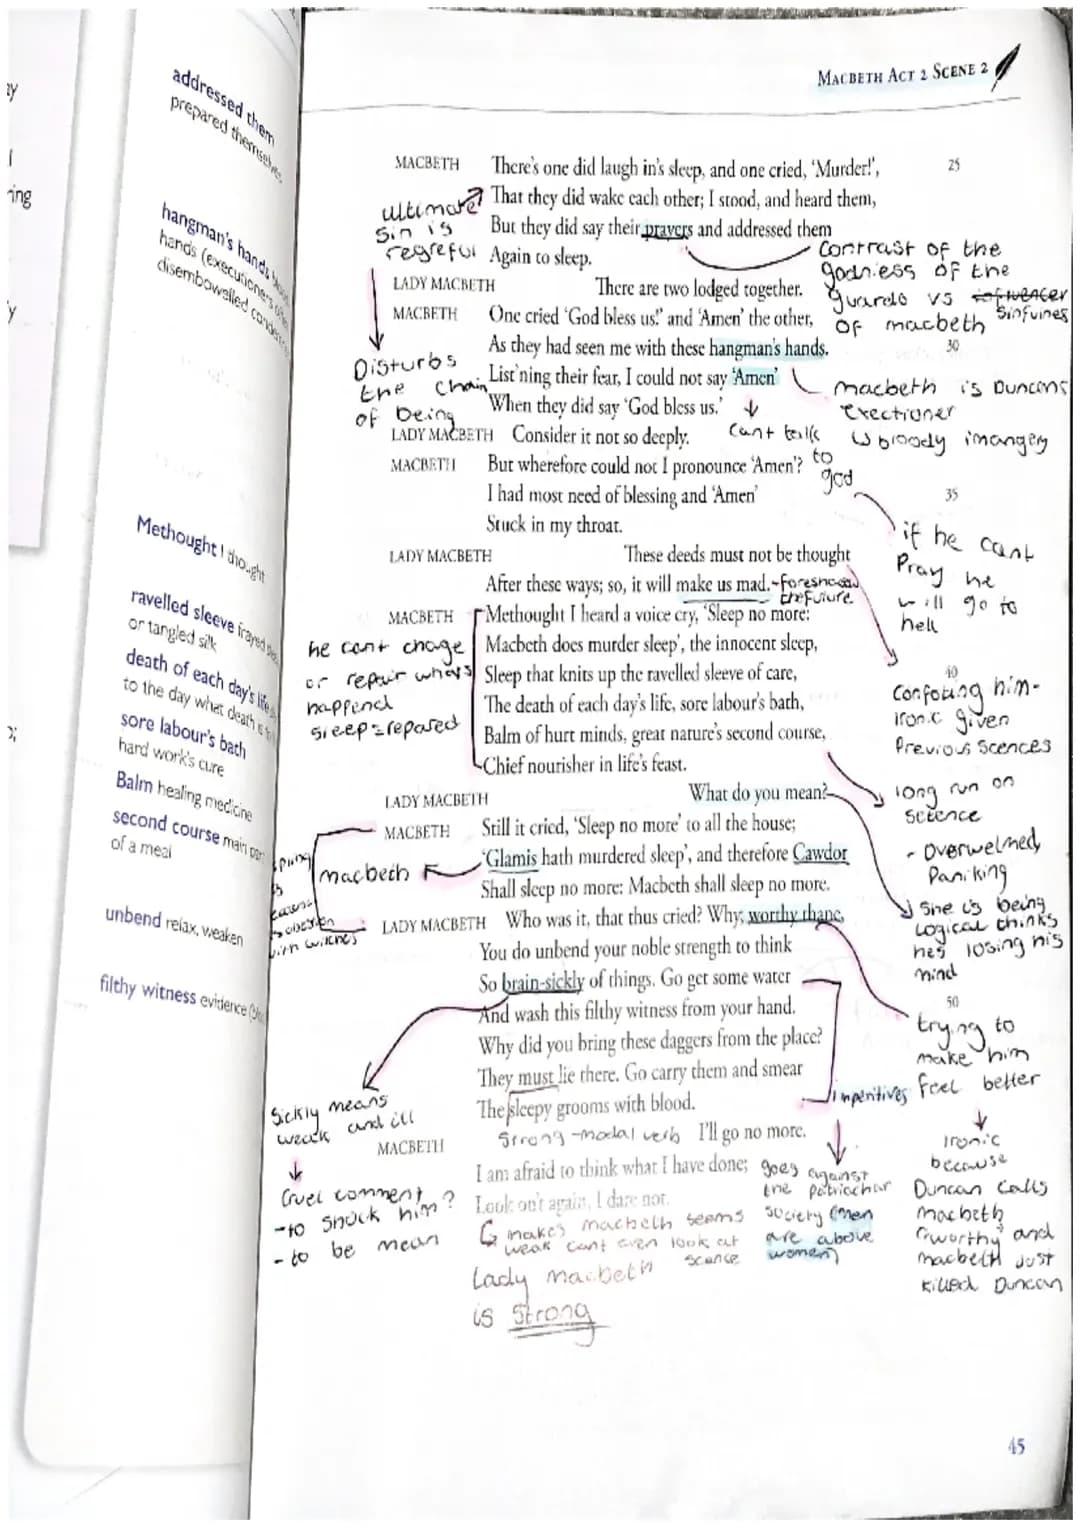 MACBETH ACT 2 SCENE 2
addressed them
prepared themselves
hangman's hands
hands (executioners
disembowelled
Methought I thought
ravelled sleeve frayed
or tangled silk
death of each day's life
to the day what death is
sore labour's bath
hard work's cure
Balm healing medicine
second course main
of a meal
unbend relax, weaken
filthy witness evidence
ring
MACBETH There's one did laugh in's sleep, and one cried, 'Murder!', 25
That they did wake each other; I stood, and heard them,
But they did say their prayers and addressed them
Again to sleep.
LADY MACBETH There are two lodged together.
MACBETH One cried 'God bless us!' and 'Amen' the other,
As they had seen me with these hangman's hands. 30
List'ning their fear, I could not say 'Amen'
When they did say 'God bless us.'
LADY MACBETH Consider it not so deeply.
MACBETH But wherefore could not I pronounce 'Amen'?
I had most need of blessing and 'Amen' 35
Stuck in my throat.
LADY MACBETH These deeds must not be thought
After these ways; so, it will make us mad.
MACBETH Methought I heard a voice cry, 'Sleep no more:
Macbeth does murder sleep', the innocent sleep,
Sleep that knits up the ravelled sleeve of care, 40
The death of each day's life, sore labour's bath,
Balm of hurt minds, great nature's second course,
Chief nourisher in life's feast.
LADY MACBETH What do you mean?
MACBETH Still it cried, 'Sleep no more' to all the house;
'Glamis hath murdered sleep', and therefore Cawdor
Shall sleep no more: Macbeth shall sleep no more.
LADY MACBETH Who was it, that thus cried? Why, worthy thane,
You do unbend your noble strength to think
So brain-sickly of things. Go get some water
And wash this filthy witness from your hand. 50
Why did you bring these daggers from the place?
They must lie there. Go carry them and smear
The sleepy grooms with blood.
MACBETH I'll go no more.
I am afraid to think what I have done;
Look on't again, I dare not.
ultimate
sin is
regreful
Disturbs
the chain
of being
contrast of the
godniess of the
guards vs
sinfulnes
of macbeth
macbeth is Duncans
exectioner
bloody imangery
cant talk
to
god
if he cant
Pray he
will go to
hell
-foreshadow
the future
he cant change
or repair whats
happend
sleep=repared
Confoting him-
ironic given
Previous scences
long run on
scetence
- overwelmed,
Paniking
macbeth
with witches
She is being
Logical thinks
hes losing his
mind
trying to
make him
feel better
Ironic
because
Duncan calls
macbeth
"worthy" and
macbeth Just
killed Duncan
Sickly means
weak and ill
Cruel comment?
-to shock him
- to be mean
Strong -modal verb
imperitives
goes against
the patriachar
society (men
are above
women)
makes macbeth seems
weak cant even look at
scence
Lady macbeth
is Strong
45